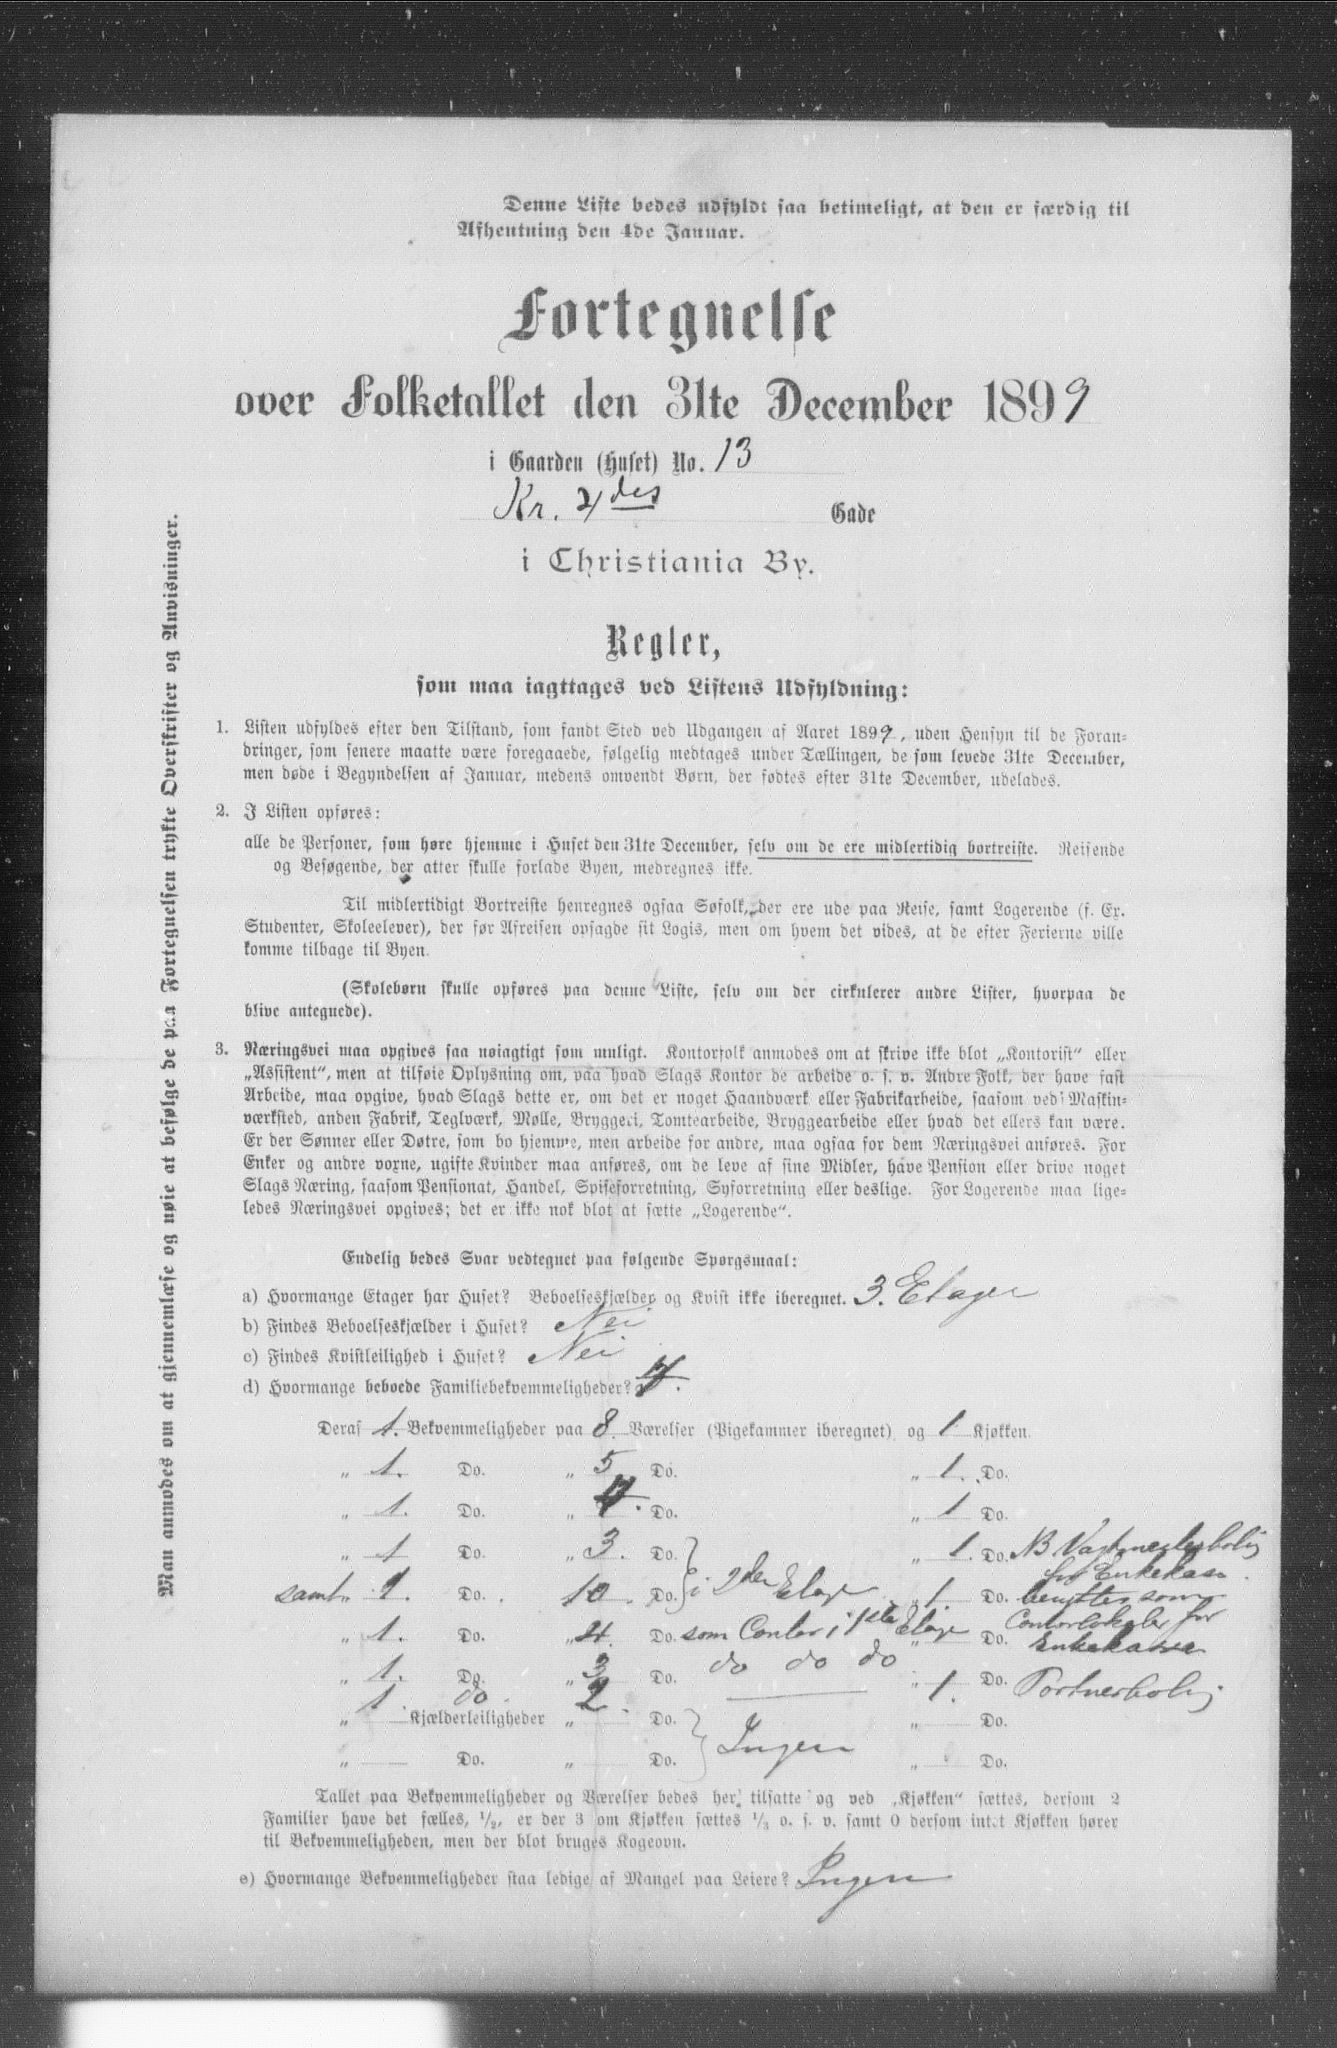 Denne Liste bedes udfyldt saa betimeligt, at den er færdig til
Afhentning den 4de Januar.
Fortegnelse
over Folketallet den 31te December 1899
i Gaarden (Huset) No. 13
Kr. 4des Gade
i Christiania By.
Regler,
som maa iagttages ved Listens Udfyldning:
1. Listen udfyldes efter den Tilstand, som fandt Sted ved Udgangen af Aaret 1899, uden Hensyn til de Foran-
dringer, som senere maatte være foregaaede, følgelig medtages under Tællingen, de som levede 31te December,
men døde i Begyndelsen af Januar, medens omvendt Børn, der fødtes efter 31te December, udelades.
2. I Listen opføres:
alle de Personer, som høre hjemme i Huset den 31te December, selv om de ere midlertidig bortreiste. Reisende
og Besøgende, der atter skulle forlade Byen, medregnes ikke.
Til midlertidigt Bortreiste henregnes ogsaa Søfolk, der ere ude paa Reise, samt Logerende (f. Ex.
Studenter, Skoleelever), der før Afreisen opsagde sit Logis, men om hvem det vides, at de efter Ferierne ville
komme tilbage til Byen.
(Skolebørn skulle opføres paa denne Liste, selv om der cirkulerer andre Lister, hvorpaa de
blive antegnede).
3. Næringsvei maa opgives saa nøiagtigt som muligt. Kontorfolk anmodes om at skrive ikke blot „Kontorist“ eller
„Assistent“, men at tilføie Oplysning om, paa hvad Slags Kontor de arbeide o. s. v. Andre Folk, der have fast
Arbeide, maa opgive, hvad Slags dette er, om det er noget Haandværk eller Fabrikarbeide, saasom ved Maskin-
værksted, anden Fabrik, Teglværk, Mølle, Bryggeri, Tomtearbeide, Bryggearbeide eller hvad det ellers kan være.
Er der Sønner eller Døtre, som bo hjemme, men arbeide for andre, maa ogsaa for dem Næringsvei anføres. For
Enker og andre voxne, ugifte Kvinder maa anføres, om de leve af sine Midler, have Pension eller drive noget
Slags Næring, saasom Pensionat, Handel, Spiseforretning, Syforretning eller deslige. For Logerende maa lige-
ledes Næringsvei opgives; det er ikke nok blot at sætte „Logerende“.
Endelig bedes Svar vedtegnet paa følgende Spørgsmaal:
a) Hvormange Etager har Huset? Beboelseskjælder og Kvist ikke iberegnet. 3. Etager
b) Findes Beboelseskjælder i Huset? Nei
c) Findes Kvistleilighed i Huset? Nei
d) Hvormange beboede Familiebekvemmeligheder?
Deraf 1. Bekvemmeligheder paa 8. Værelser (Pigekammer iberegnet) og 1 Kjøkken.
„ 1. Do. „ 5 Do. „ 1. Do.
„ 1 Do. „ 4. Do. „ 1 Do.
„ 1 Do. „ 3. Do. „ 1. Do. NB Vagtmesterbolig
for Enkekasse.
samt „ 1. Do. 10 Do. i 2den Etage „ 1. Do. benyttes som
Contorlokaler for
„ 1. Do. „ 4. Do. som Contor i 1ste Etage „ Do. Enkekassen
„ 1. Do. 3 Do. do do do „ Do.
1. do. 2. 1. Portnerbolig
„ Kjælderleiligheder „ Do. „ Do.
Ingen
„ Do. „ Do. „ Do.
Tallet paa Bekvemmeligheder og Værelser bedes her tilsatte og ved „Kjøkken“ sættes, dersom 2
Familier have det fælles, 1/2, er der 3 om Kjøkken sættes 1/3 o. s. v. samt 0 dersom intet Kjøkken hører
til Bekvemmeligheden, men der blot bruges Kogeovn.
e) Hvormange Bekvemmeligheder staa ledige af Mangel paa Leiere? Ingen
Man anmodes om at gjennemlæse og nøie at befølge de paa Fortegnelsen trykte Overskrifter og Anvisninger.